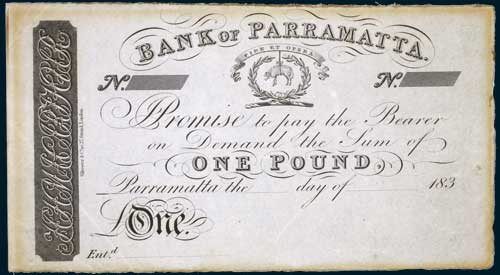 BANK OF PARRAMATTA.
FIDE ET OPERA
No.
No.
Promise to pay the Bearer
on Demand the Sum of
ONE POUND,
Parramatta the day of 183
£One.
Ent.d